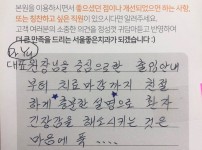 본원을 이용하시면서 좋으셨던 점이나 개선되었으면 하는 사항,
또는 칭찬하고 싶은 직원이 있으시다면 알려주세요.
고객 여러분의 소중한 의견을 정성껏 귀담아듣고 반영하여
더 큰 만족을 드리는 서울좋은치과가 되겠습니다 :)
대표원장님을 중심으로한 출입안내
부터 치료마감까지 친절
하게 충분한 설명으로 환자
긴장감을 해소시키는 것은
마음에 쏙 ....